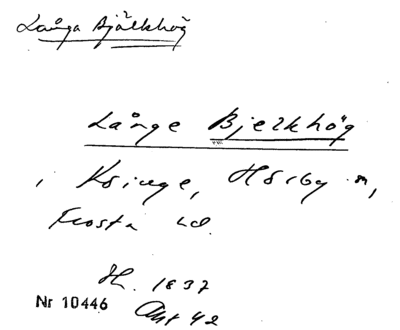 Långa Bjälkhög
Långe Bjelkhög
i Kringe, Hörby sn,
Frosta hd.
H. 1837
Nr 10446
Akt 42